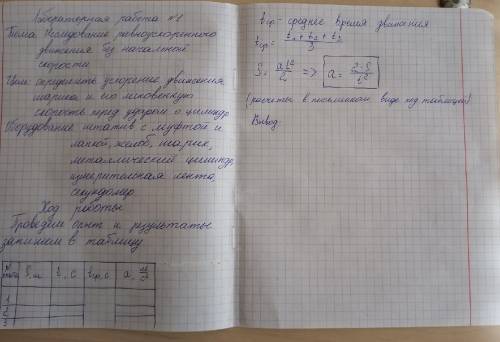 Лабораторная работа №1
Тема: Исследование равноускоренного
движения без начальной
скорости
Цель: определить ускорение движения
шарика и его мгновенную
скорость перед ударом о цилиндр
Оборудование: штатив с муфтой и
лапкой, жёлоб, шарик,
металлический цилиндр,
измерительная лента,
секундомер.
Ход работы
Проведём опыт и результаты
запишем в таблицу
№ S, м t, с tср, с a, м/с²
1
2
3
tср = среднее время движения
tср = (t₁ + t₂ + t₃)/3
S = at²/2 => a = 2·S/t²
(расчёты в письменном виде под таблицей)
Вывод: